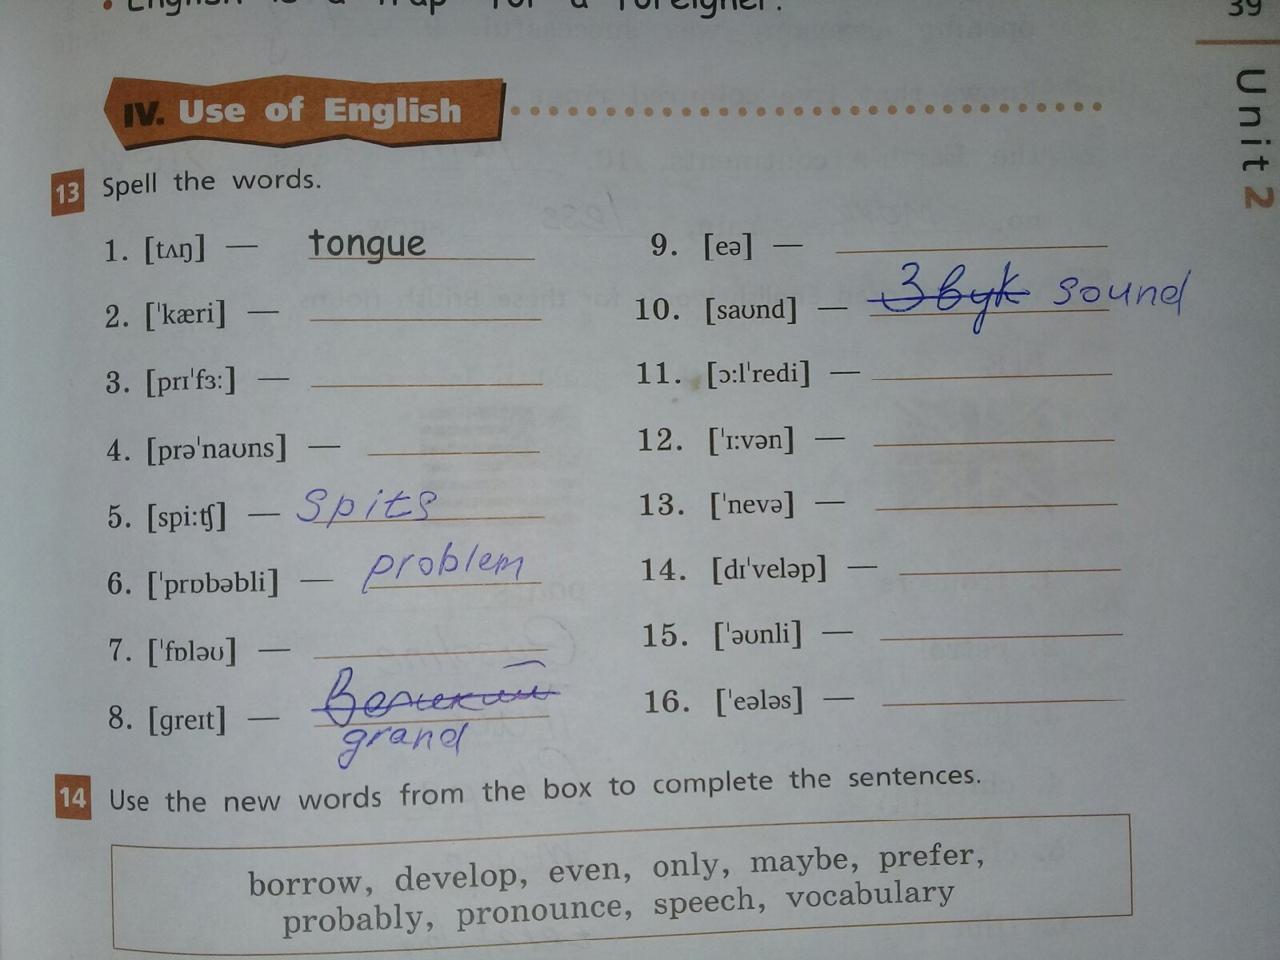 • English is a "trap" for a foreigner.
39
Unit 2
IV. Use of English
13 Spell the words.
1. [tʌŋ] — tongue
2. [ˈkæri] —
3. [prɪˈfɜ:] —
4. [prəˈnaʊns] —
5. [spi:ʧ] — spits
6. [ˈprɒbəbli] — problem
7. [ˈfɒləʊ] —
8. [greɪt] — Великий
grand
9. [eə] —
10. [saʊnd] — Звук sound
11. [ɔ:lˈredi] —
12. [ˈɪ:vən] —
13. [ˈnevə] —
14. [dɪˈveləp] —
15. [ˈəʊnli] —
16. [ˈeələs] —
14 Use the new words from the box to complete the sentences.
borrow, develop, even, only, maybe, prefer,
probably, pronounce, speech, vocabulary